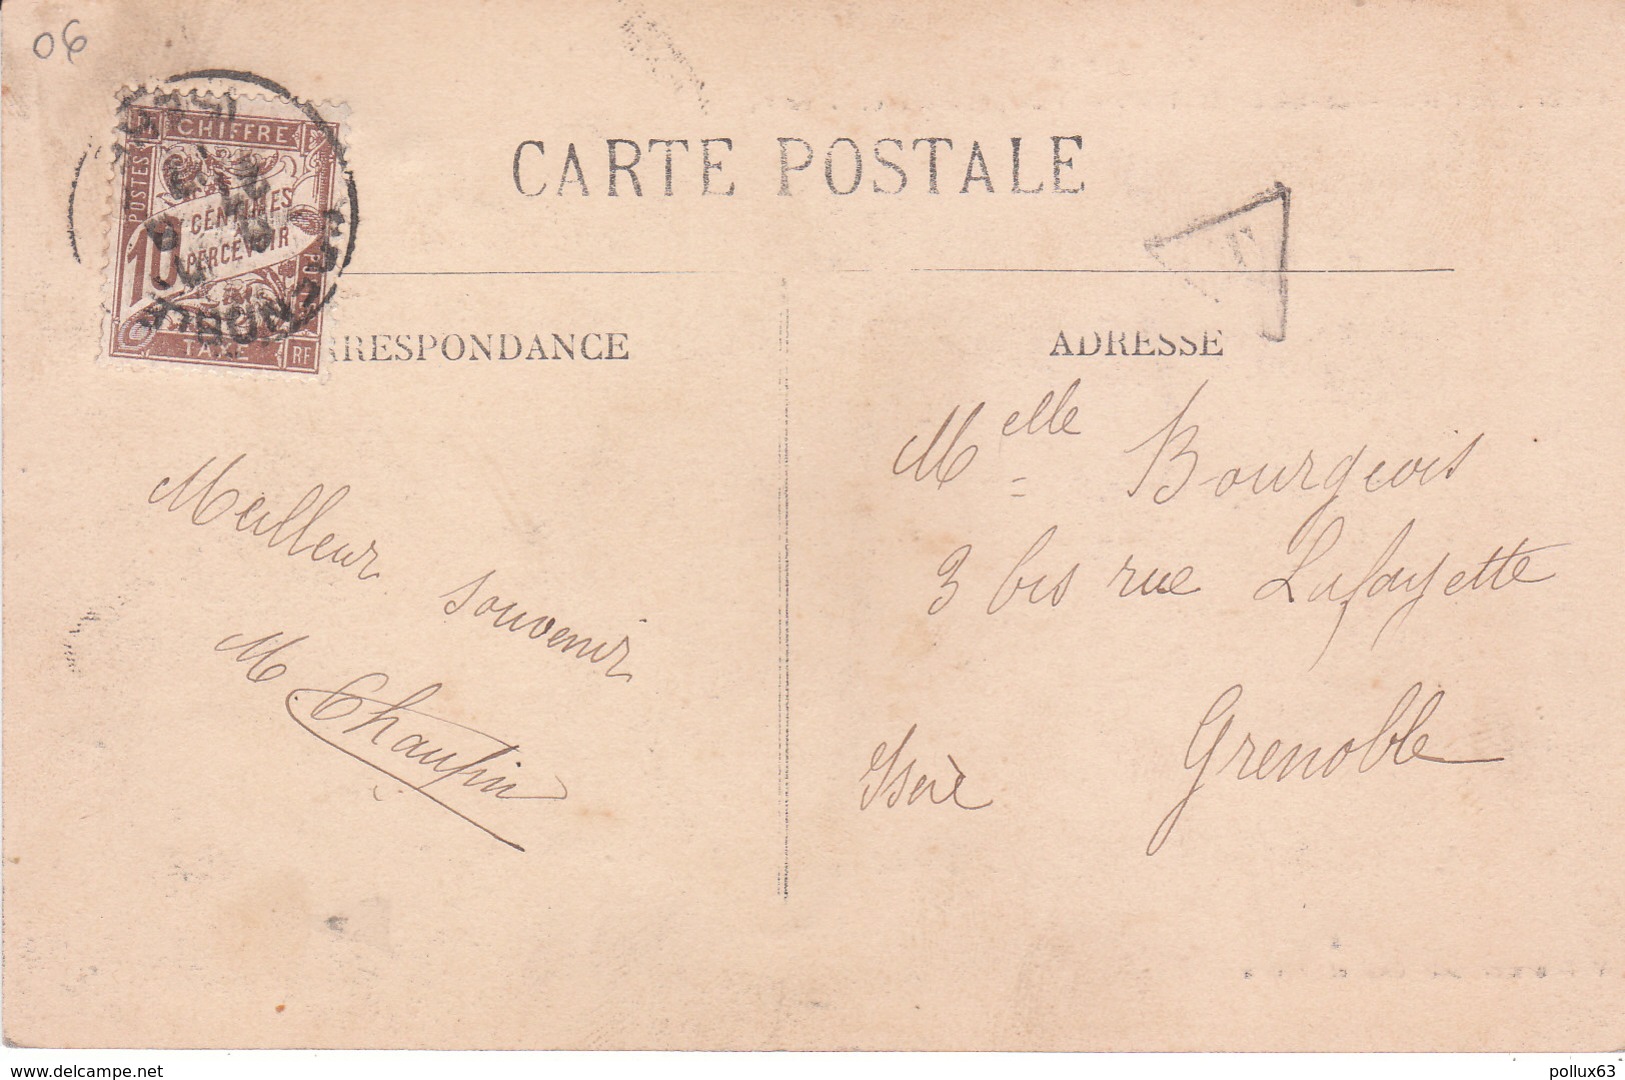 06
CHIFFRE
POSTES
10
CENTIMES
A PERCEVOIR
TAXE
RF
CARTE POSTALE
T
RRESPONDANCE
ADRESSE
Meilleur souvenir
M Chaupin
Melle Bourgeois
3 bis rue Lafayette
Grenoble
Isère
www.delcampe.net
pollux63